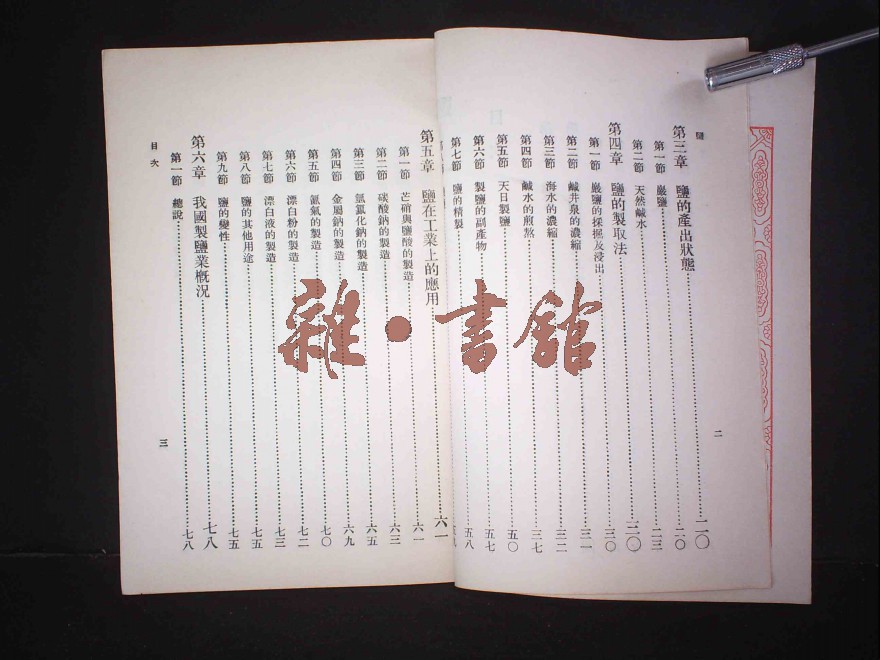 鹽
二
第三章 鹽的產出狀態……二〇
第一節 巖鹽……二〇
第二節 天然鹹水……二三
第四章 鹽的製取法……三〇
第一節 巖鹽的採掘及浸出……三〇
第二節 鹹井泉的濃縮……三一
第三節 海水的濃縮……三二
第四節 鹹水的煎熬……三七
第五節 天日製鹽……五〇
第六節 製鹽的副產物……五七
第七節 鹽的精製……五八
第五章 鹽在工業上的應用……六一
第一節 芒硝與鹽酸的製造……六一
第二節 碳酸鈉的製造……六三
第三節 氫氧化鈉的製造……六五
第四節 金屬鈉的製造……六九
第五節 氯氣的製造……七〇
第六節 漂白粉的製造……七二
第七節 漂白液的製造……七三
第八節 鹽的其他用途……七五
第九節 鹽的變性……七五
第六章 我國製鹽業概況……七八
第一節 總說……七八
目次
三
雜·書館